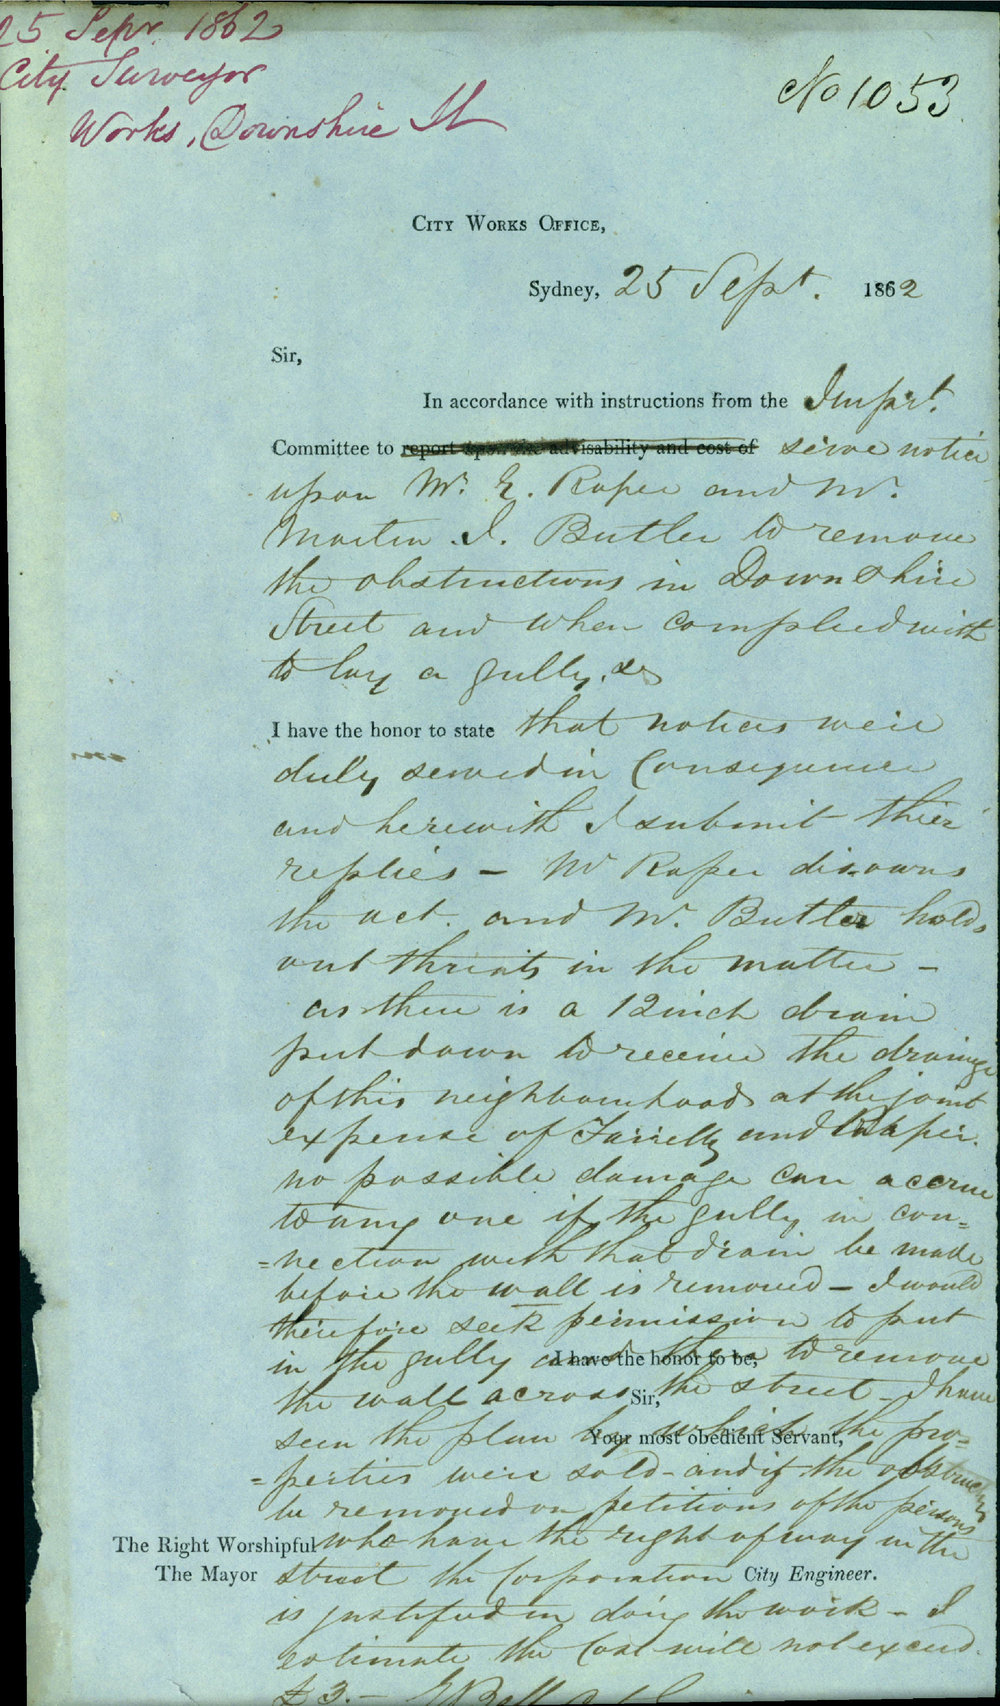 25 Sepr. 1862
City Surveyor
Works, Downshire St
No 1053
CITY WORKS OFFICE,
Sydney, 25 Sept. 1862
Sir,
In accordance with instructions from the Imprt.
Committee to report upon the advisability and cost of serve notice
upon Mr. E. Roper and Mr.
Martin I. Butler to remove
the obstructions in Downshire
Street and when complied with
to lay a gully, &c
I have the honor to state that notices were
duly served in Consequence
and herewith I submit thier
replies — Mr Roper disowns
the act. and Mr. Butler holds
out threats in the matter —
as there is a 12 inch drain
put down to receive the drainage
of this neighbourhood at the joint
expense of Farrelly and Roper.
no possible damage can accrue
to any one if the gully in con=
=nection with that drain be made
before the wall is removed — I would
therefore seek permission to put
in the gully and then to remove
I have the honor to be,
the wall across the street — I have
Sir,
seen the plan by which the pro=
Your most obedient Servant,
=perties were sold — and if the obstructions
be removed on petitions of the persons
The Right Worshipful who have the right of way in the
The Mayor street the Corporation City Engineer.
is justified in doing the work — I
estimate the Cost will not exceed
£3. — E Bell